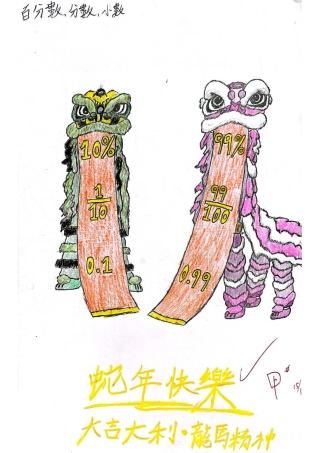 百分數、分數、小數
10%
1/10
0.1
99%
99/100
0.99
蛇年快樂
大吉大利·龍馬精神
甲